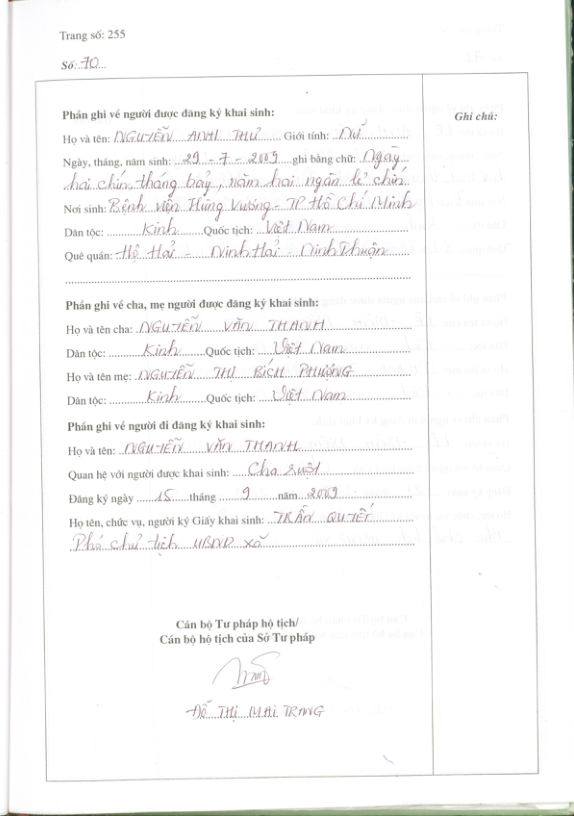 Trang số: 255
Số: 70
Phần ghi về người được đăng ký khai sinh:
Ghi chú:
Họ và tên: NGUYỄN ANH THƯ Giới tính: Nữ
Ngày, tháng, năm sinh: 29 - 7 - 2009 ghi bằng chữ: Ngày
hai chín, tháng bảy, năm hai ngàn lẻ chín
Nơi sinh: Bệnh viện Hùng Vương - TP Hồ Chí Minh
Dân tộc: Kinh Quốc tịch: Việt Nam
Quê quán: Hộ Hải - Ninh Hải - Ninh Thuận
Phần ghi về cha, mẹ người được đăng ký khai sinh:
Họ và tên cha: NGUYỄN VĂN THANH
Dân tộc: Kinh Quốc tịch: Việt Nam
Họ và tên mẹ: NGUYỄN THỊ BÍCH PHƯỢNG
Dân tộc: Kinh Quốc tịch: Việt Nam
Phần ghi về người đi đăng ký khai sinh:
Họ và tên: NGUYỄN VĂN THANH
Quan hệ với người được khai sinh: Cha ruột
Đăng ký ngày 15 tháng 9 năm 2009
Họ tên, chức vụ, người ký Giấy khai sinh: TRẦN QUYẾT
Phó chủ tịch UBND xã
Cán bộ Tư pháp hộ tịch/
Cán bộ hộ tịch của Sở Tư pháp
ĐỖ THỊ MAI TRANG